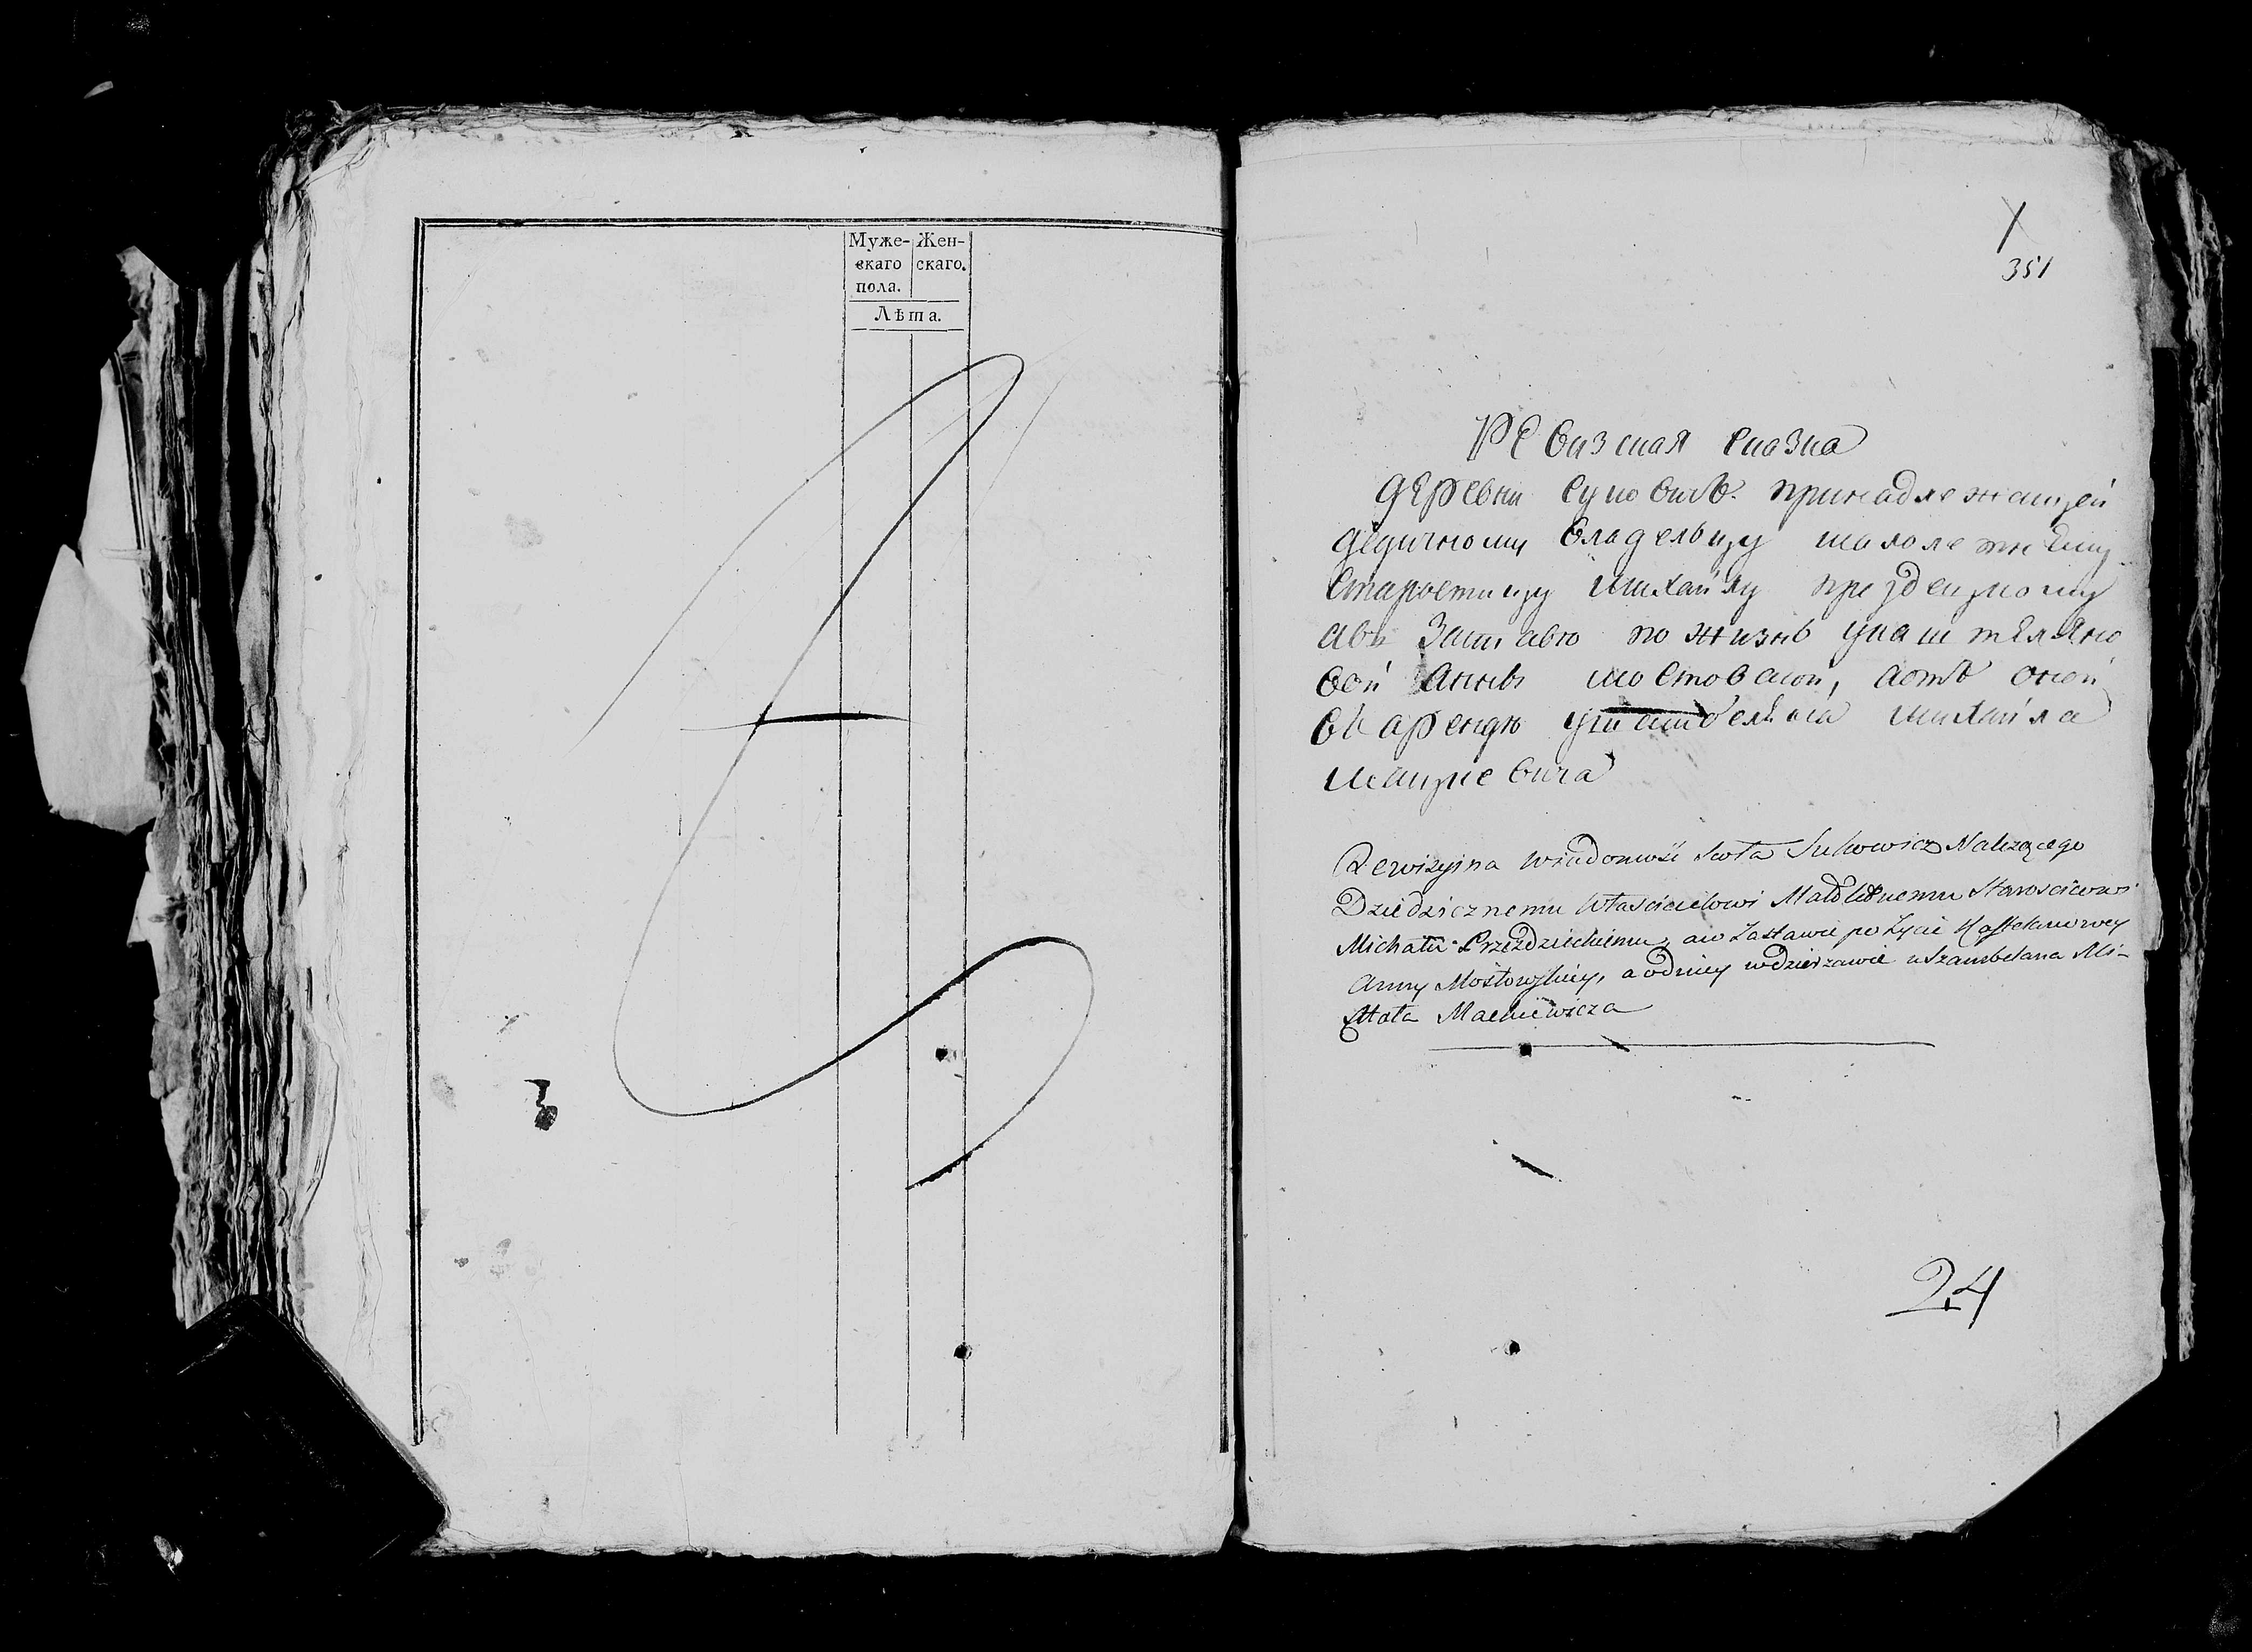 Муже-
скаго
пола.
Жен-
скаго.
Лѣта.
351
Ревизская сказка
деревни Суковичъ принадлежащей
дедичному владельцу малолетнему
Старостицу Михайлу Прездецкому
авъ Заставю по жизнь укаштеляно
вой Анны Мостовской, аотъ оной
въ арендю Михайла
Мацкевича
Rewizyina Wiadomość Sioła Sukowicz Należącego
Dziedzicznemu Właścicielowi Małoletnemu Starościcowi
Michału Przezdzieckiemu, aw Zastawie po Życie Kasztelanowey
Anny Mostowskiey, a odniey wdzierzawie uSzambelana Mi-
chała Mackiewicza
24